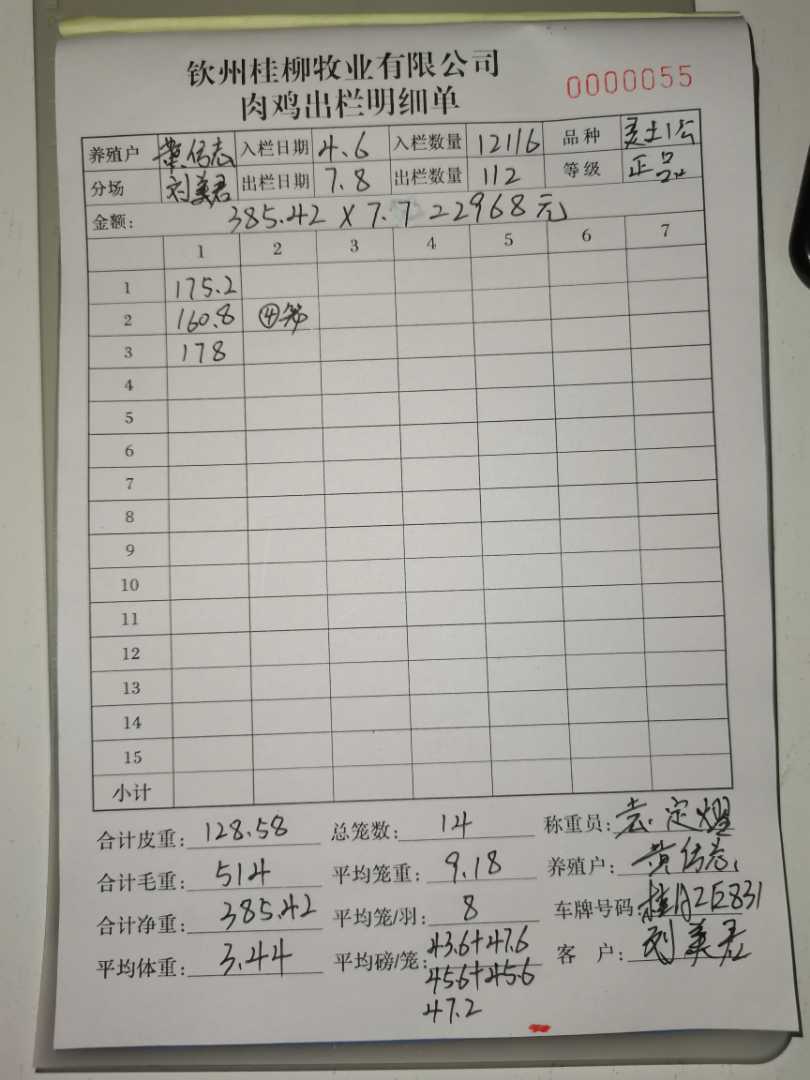 钦州桂柳牧业有限公司
肉鸡出栏明细单 0000055
养殖户 黄伟志 入栏日期 4.6 入栏数量 12116 品种 灵土1公
分场 刘美君 出栏日期 7.8 出栏数量 112 等级 正品
金额: 385.42 X 7.7 = 2968元
1 2 3 4 5 6 7
1 175.2
2 160.8 ④笼
3 178
4
5
6
7
8
9
10
11
12
13
14
15
小计
合计皮重: 128.58 总笼数: 14 称重员: 定
合计毛重: 514 平均笼重: 9.18 养殖户: 黄伟志
合计净重: 385.42 平均笼/羽: 8 车牌号码: 桂A2E831
平均体重: 3.44 平均磅/笼: 43.6+47.6 客户: 刘美君
45.6+45.6
47.2